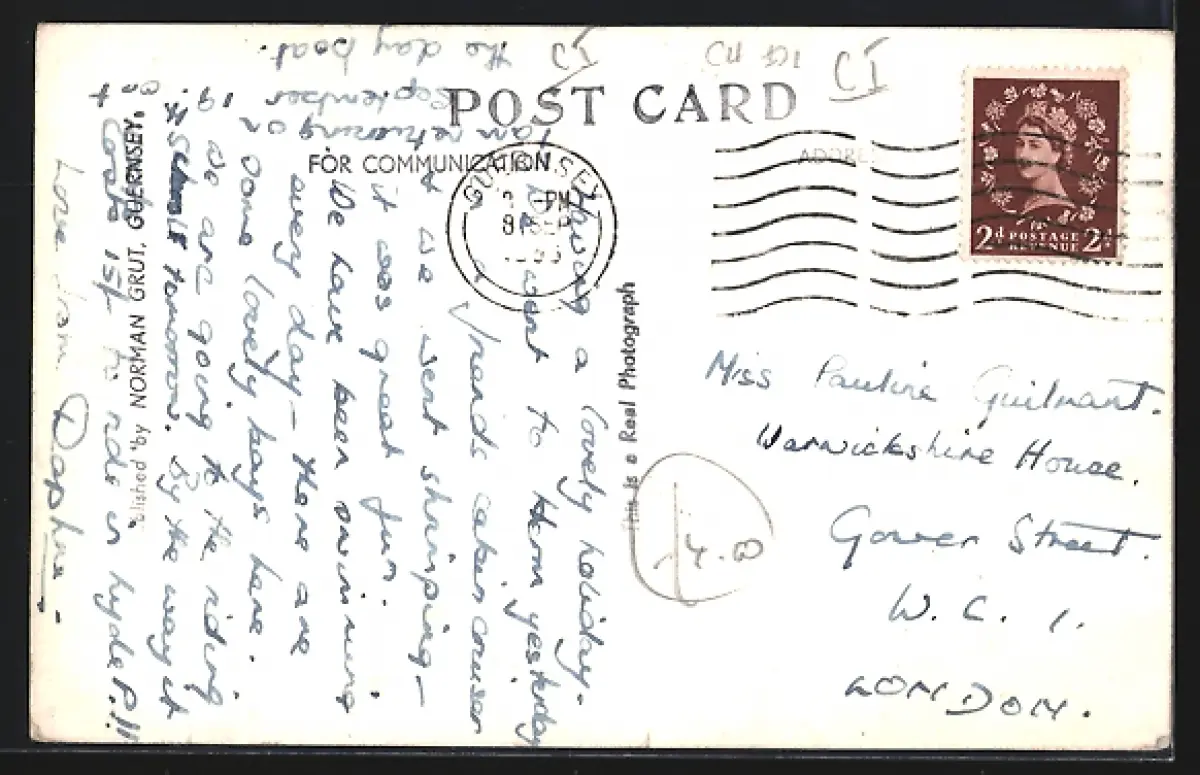 POST CARD
FOR COMMUNICATION
ADDRE
GUERNSEY
PM
SEP
2d POSTAGE 2d
REVENUE
Having a lovely holiday.
went to Herm yesterday
in a friends cabin cruiser
& we went shrimping –
it was great fun.
We have been swimming
every day – there are
some lovely bays here.
We are going to the riding
School tomorrow. By the way it
costs 15/- to ride in hyde P.!!
Love from Daphne –
I am returning on
September
the day boat.
This is a Real Photograph
blished by NORMAN GRUT, GUERNSEY.
Miss Pauline Guilmant.
Warwickshire House.
Gower Street.
W.C.1.
LONDON.
4.00